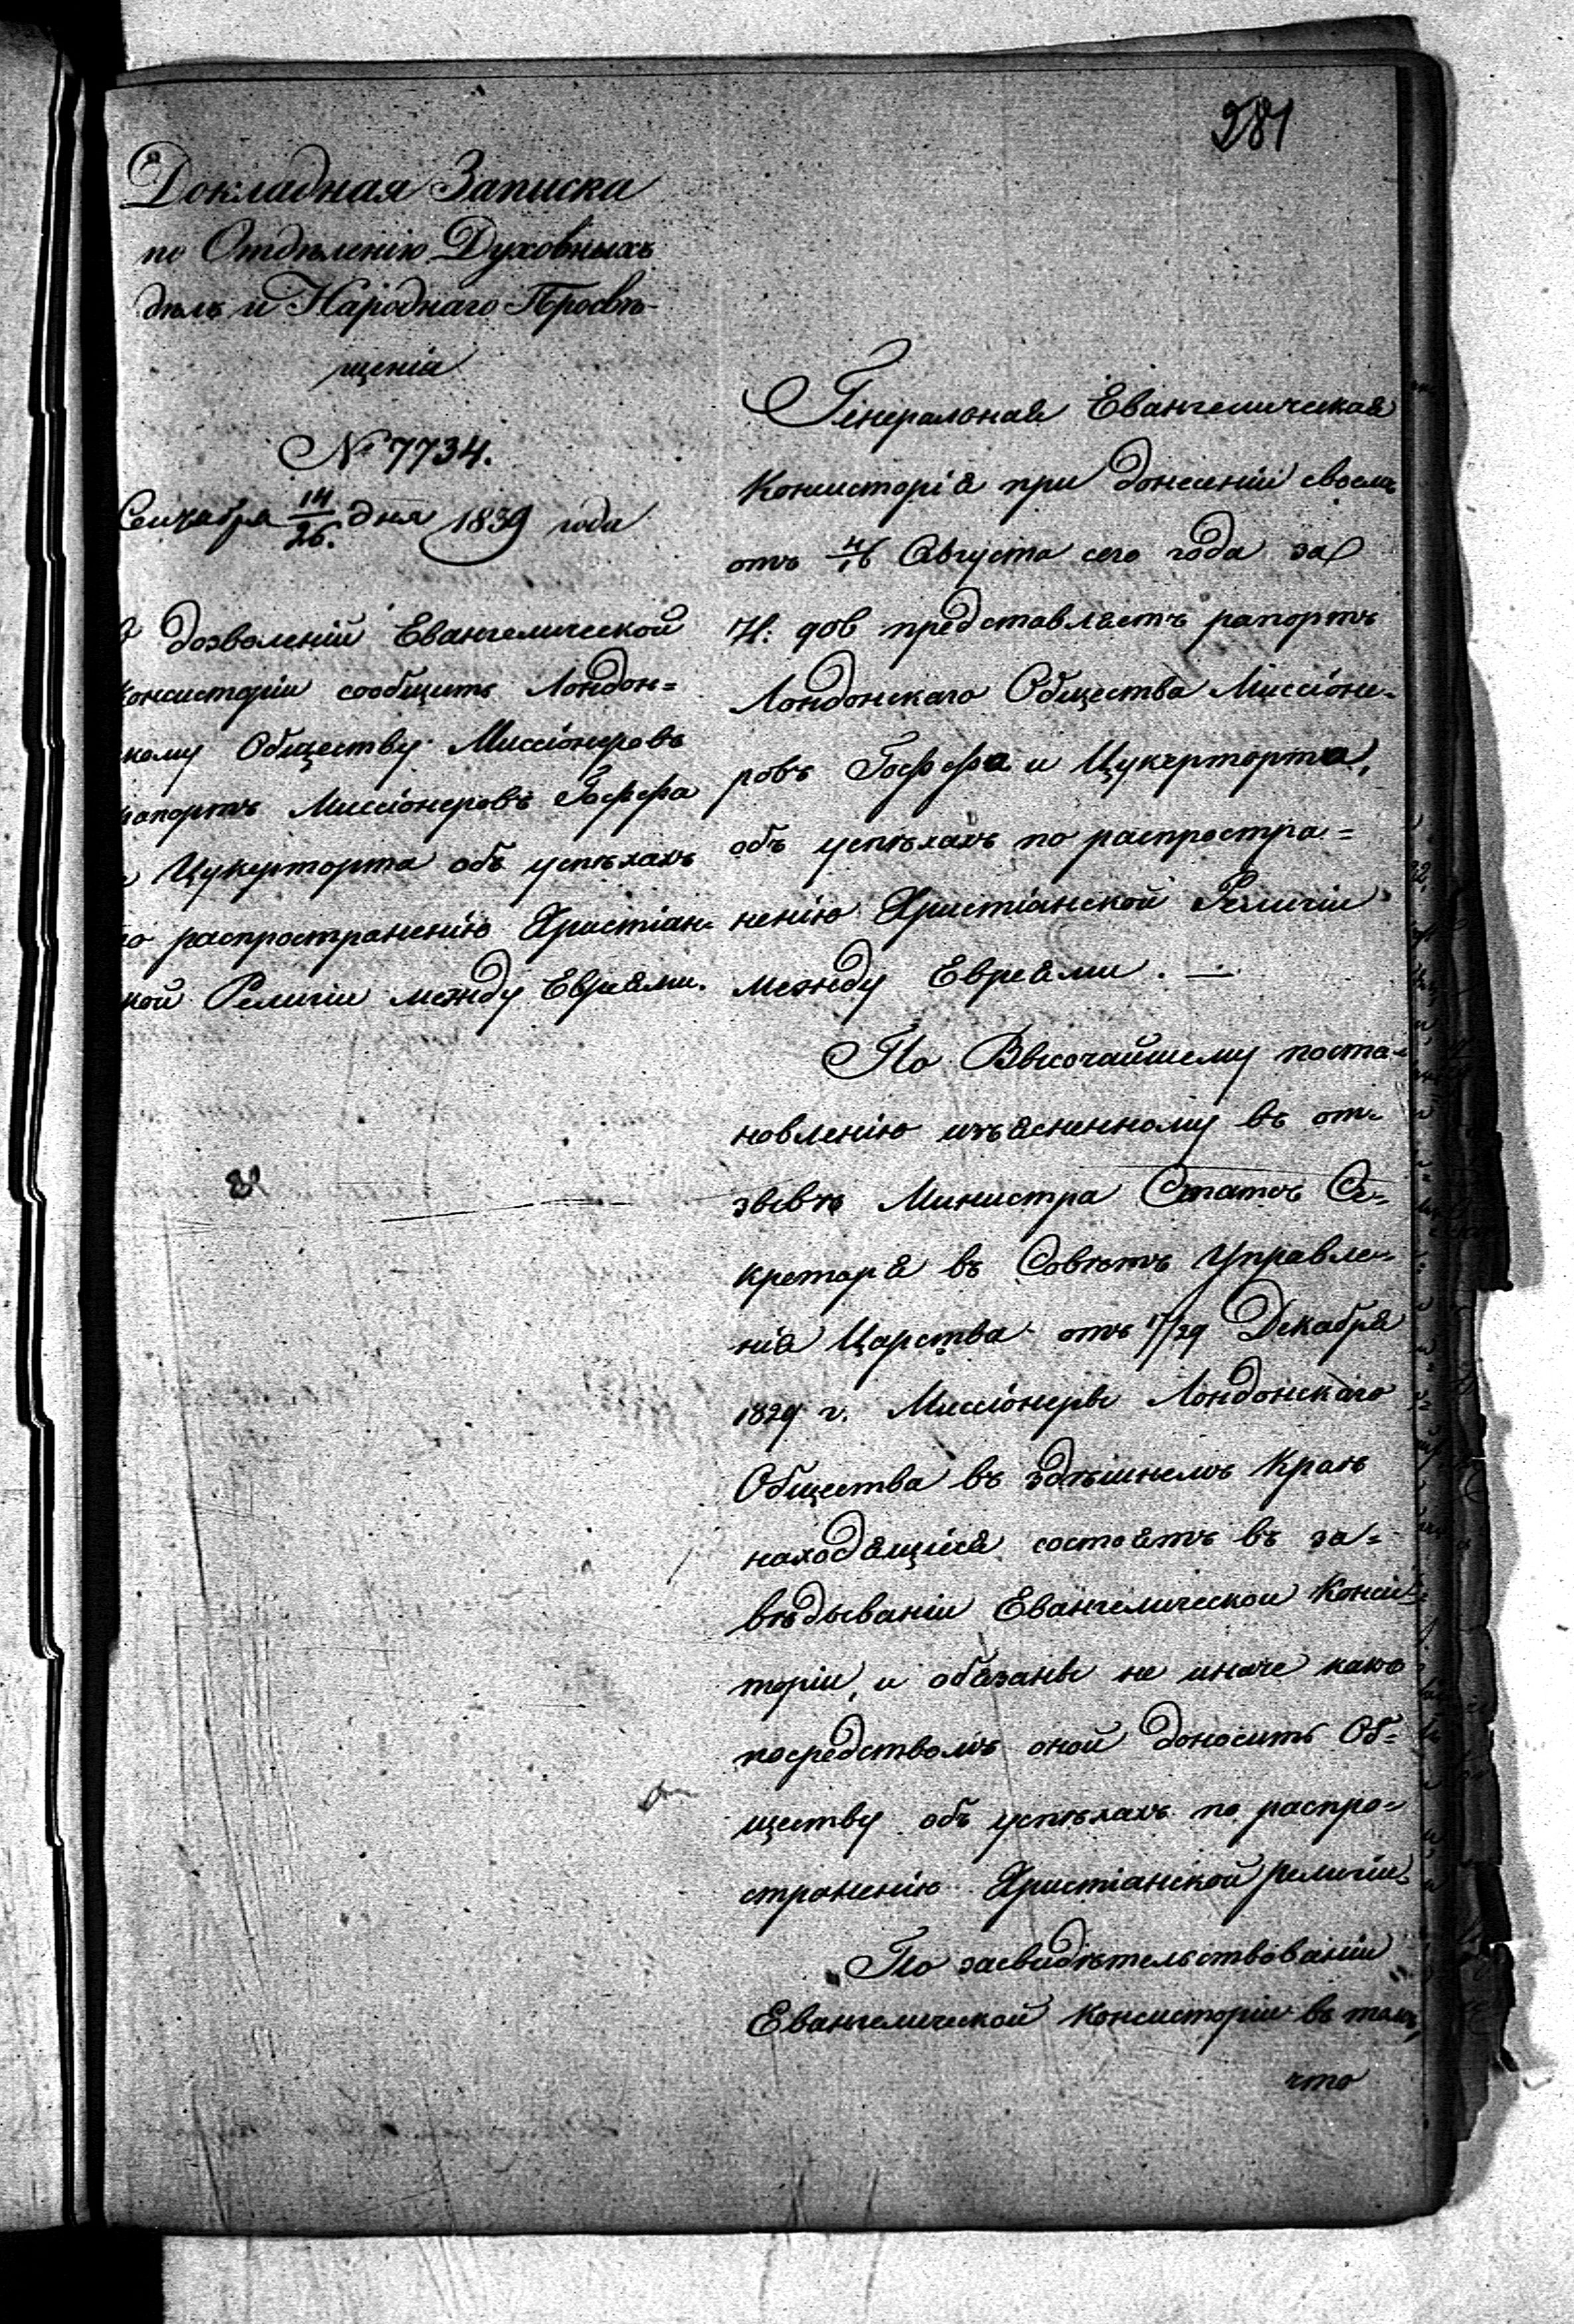 281
Докладная Записка
по Отдѣленію Духовныхъ
дѣлъ и Народнаго Просвѣ-
щенія
№ 7734.
Сентября 14/26. дня 1839 года
дозволеніи Евангелической
Консисторіи сообщить Лондон=
скому Обществу Миссіонеровъ
рапортъ Миссіонеровъ Гоффа
и Цукерторта объ успѣхахъ
по распространенію Христіан=
ской Религіи между Евреями.
Генеральная Евангелическая
Консисторія при донесеніи своемъ
отъ 4/16 Августа сего года за
№: 906 представляетъ рапортъ
Лондонскаго Общества Миссіоне-
ровъ Гоффа и Цукерторта,
объ успѣхахъ по распростра=
ненію Христіанской Религіи
между Евреями. —
По Высочайшему поста-
новленію изъясненному въ от-
зывѣ Министра Статсъ Се-
кретаря въ Совѣтъ Управле-
нія Царства отъ 17/29 Декабря
1829 г. Миссіонеры Лондонскаго
Общества въ здѣшнемъ Краѣ
находящіеся состоятъ въ за=
вѣдываніи Евангелической Консис
торіи, и обязаны не иначе какъ
посредствомъ оной доносить Об=
ществу объ успѣхахъ по распро=
страненію Христіанской религіи.
По засвидѣтельствованіи
Евангелической Консисторіи въ томъ,
что